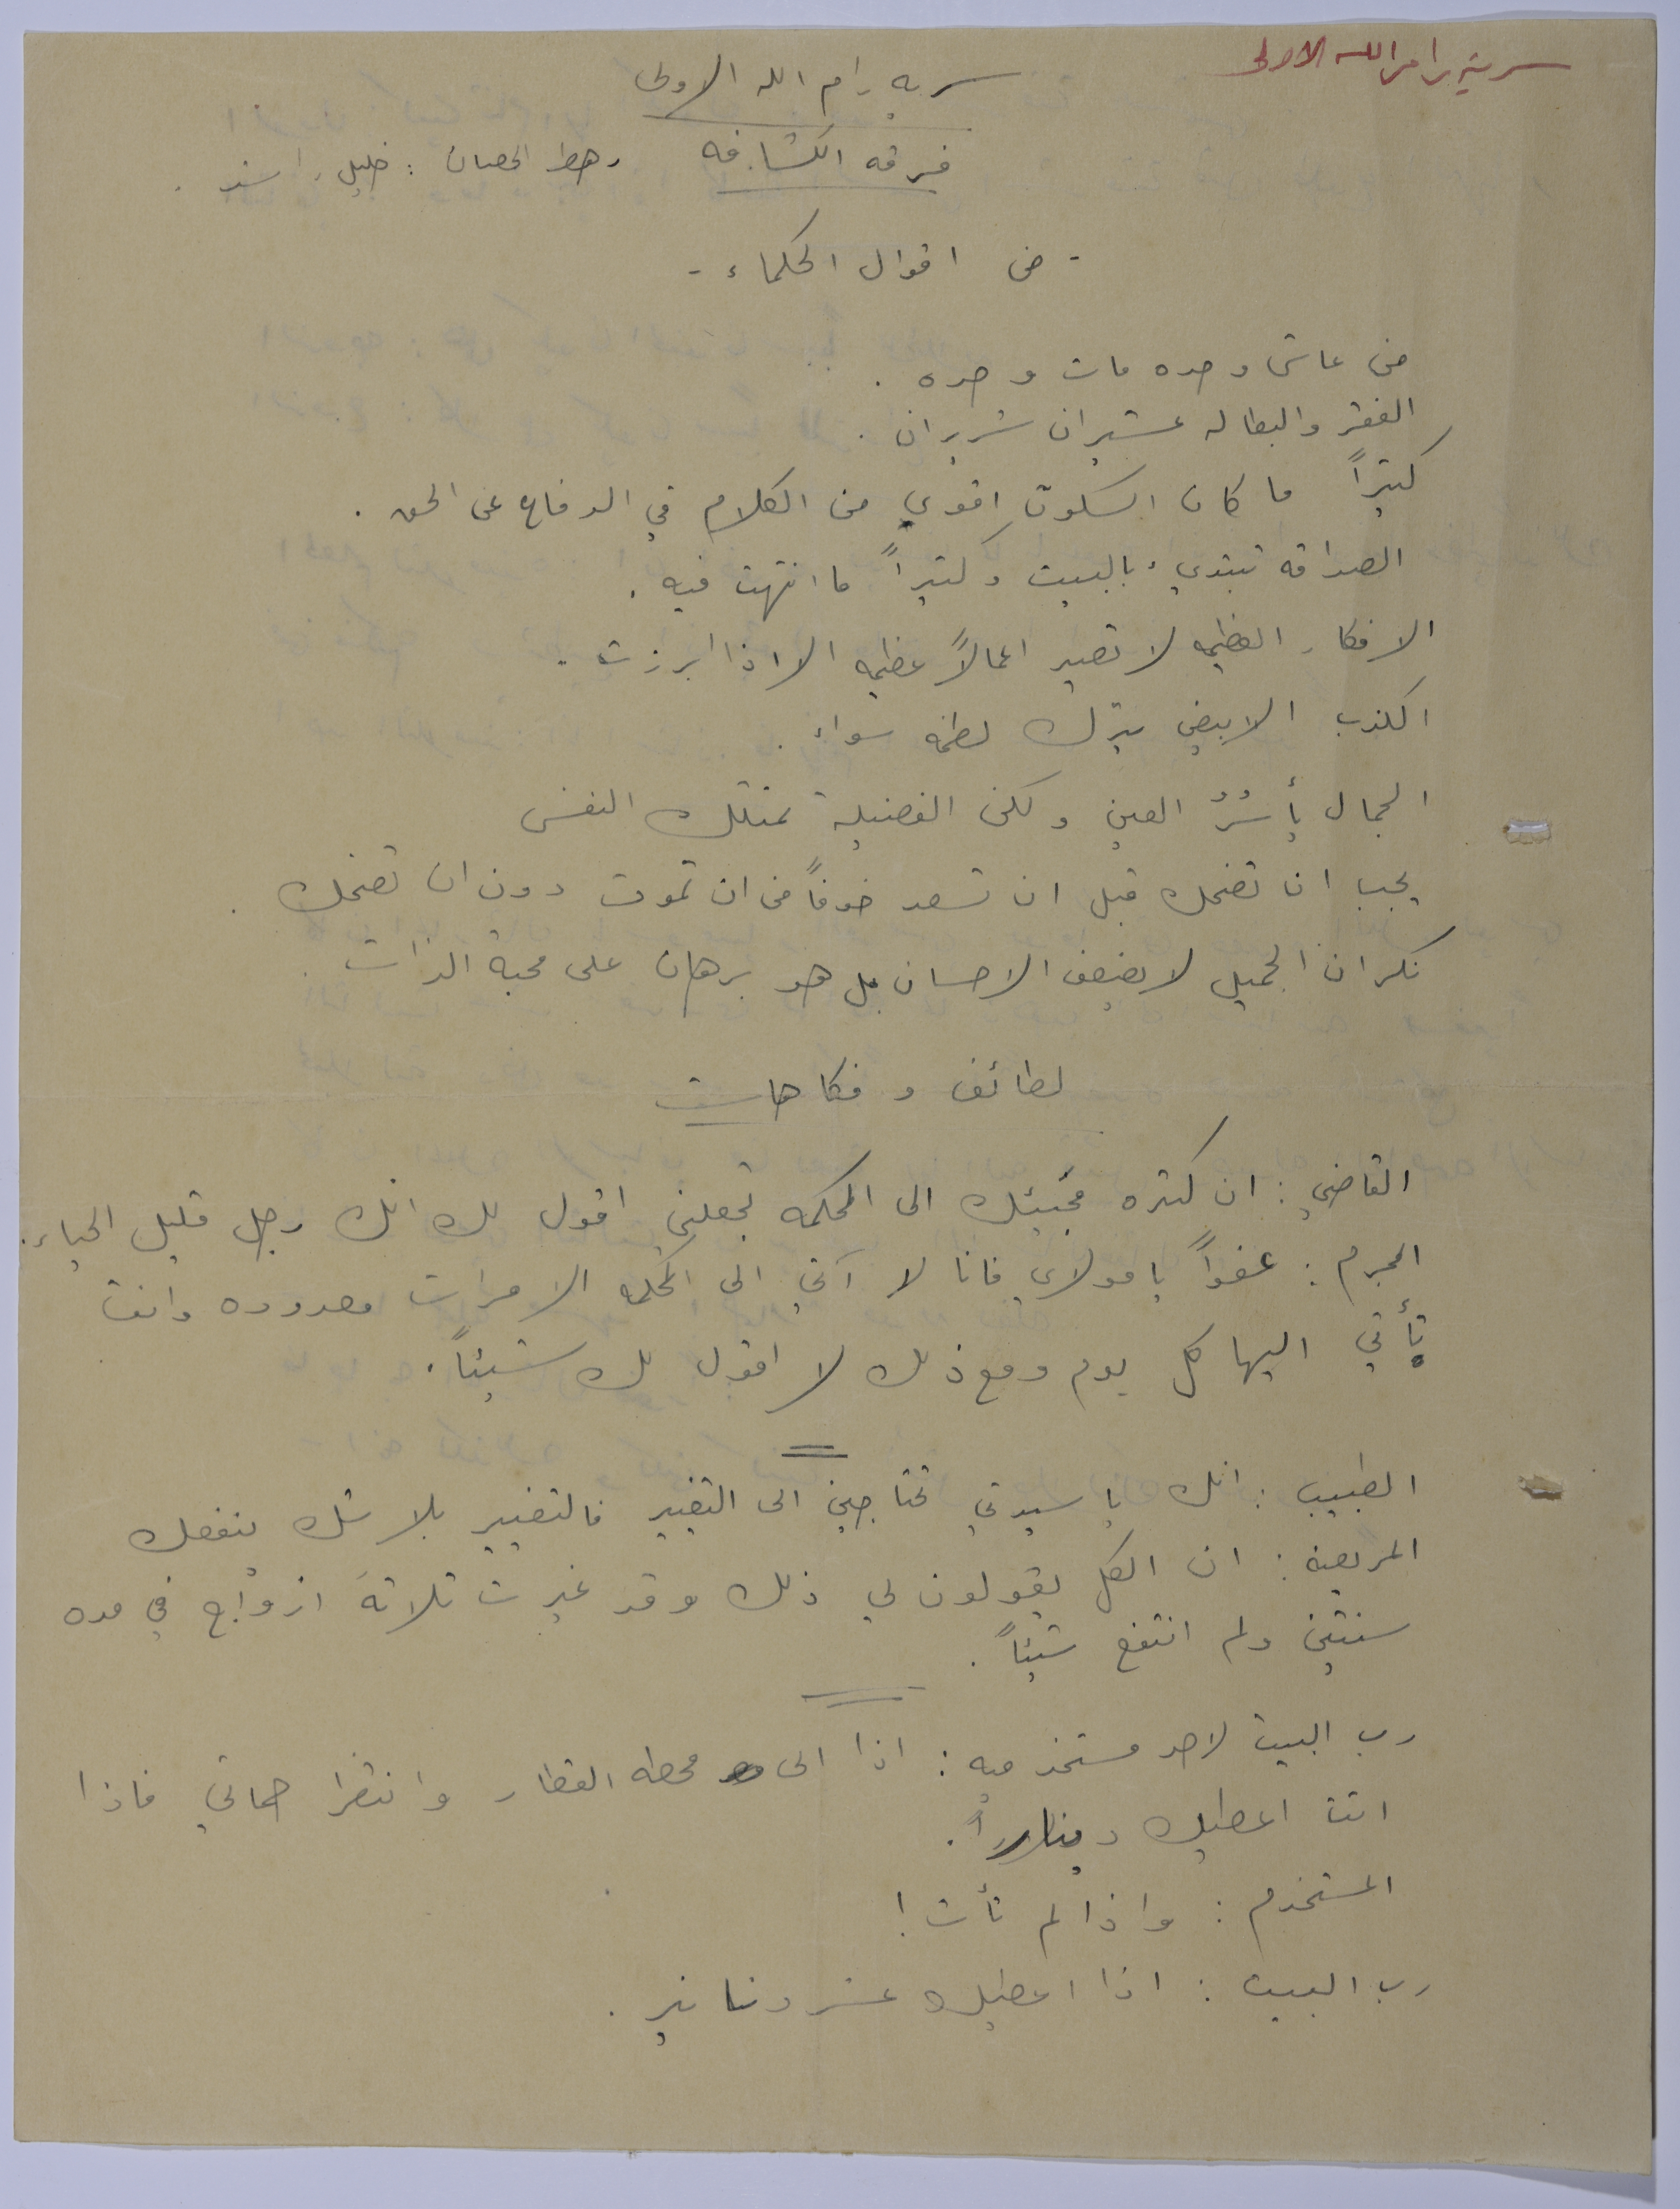 سرية رام الله الاولى
سريه رام الله الاولى
فرقه الكشافه رهط الحصان : خليل راشد .
- من اقوال الحكماء -
من عاش وحده مات وحده .
الفقر والبطاله عشيران شريران .
كثيراً ما كان السكوت اقوى من الكلام في الدفاع عن الحق .
الصداقه تبتديء بالبيت وكثيراً ما انتهت فيه .
الافكار العظيمه لا تصير اعمالاً عظيمه الا اذا ابرزت .
الكذب الابيض يترك لطخه سوداء .
الجمال يأسُرُ العين ولكن الفضيلة تمتلك النفس
يجب ان تضحك قبل ان تسعد خوفاً من ان تموت دون ان تضحك .
نكران الجميل لا يضعف الاحسان بل هو برهان على محبة الذات .
لطائف و فكاهات
القاضي : ان كثره مجيئك الى المحكمه تجعلني اقول لك انك رجل قليل الحياء .
المجرم : عفواً يا مولاي فانا لا آتي الى المحكمه الا مرات معدوده وانت
تأتي اليها كل يوم ومع ذلك لا اقول لك شيئاً .
الطبيب : انك يا سيدتي تحتاجين الى التغيير فالتغيير بلا شك ينفعك
المريضة : ان الكل يقولون لي ذلك وقد غيرت ثلاثة ازواج في مده
سنتين ولم انتفع شيئاً .
رب البيت لاحد مستخدميه : اذا الى محطه القطار وانتظر حماتي فاذا
اتت اعطيك ديناراً .
المستخدم : واذا لم تأت !
رب البيت : اذا اعطيك عشر دنانير .